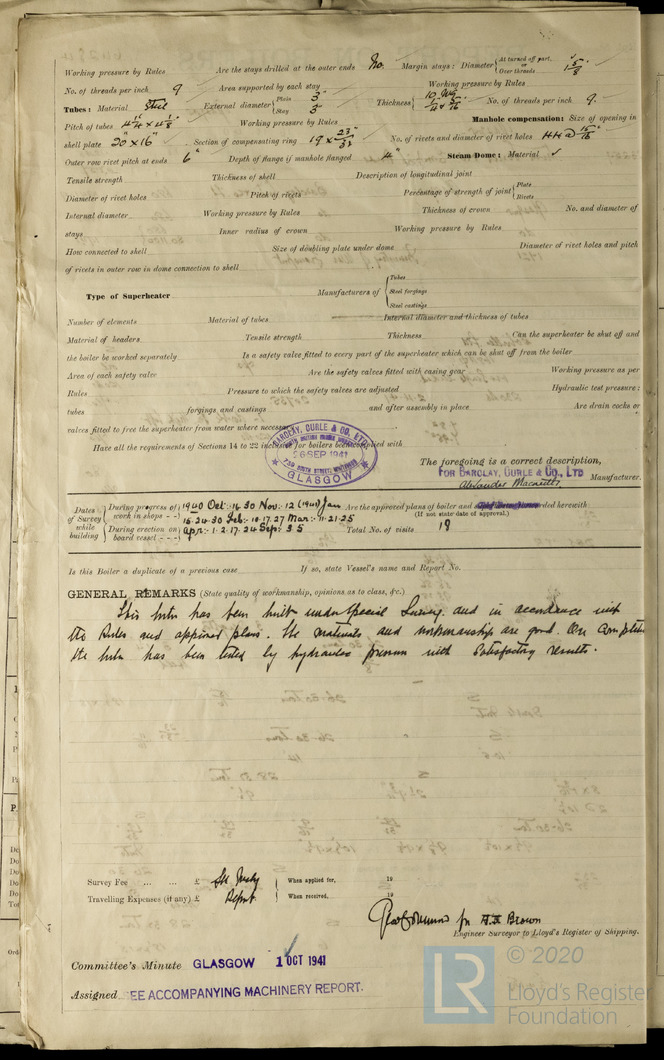 Working pressure by Rules Are the stays drilled at the outer ends No. Margin stays: Diameter { At turned off part, or Over threads 1 5/8"
No. of threads per inch 9 Area supported by each stay Working pressure by Rules
Tubes: Material Steel External diameter { Plain 3" Stay 3" Thickness { No. of threads per inch. 9.
Pitch of tubes Working pressure by Rules Manhole compensation: Size of opening in
shell plate 20" x 16" Section of compensating ring 19 x 23/32" No. of rivets and diameter of rivet holes 44 @ 15/16"
Outer row rivet pitch at ends 6" Depth of flange if manhole flanged 4" Steam Dome: Material
Tensile strength Thickness of shell Description of longitudinal joint
Diameter of rivet holes Pitch of rivets Percentage of strength of joint { Plate Rivets
Internal diameter Working pressure by Rules Thickness of crown No. and diameter of
stays Inner radius of crown Working pressure by Rules
How connected to shell Size of doubling plate under dome Diameter of rivet holes and pitch
of rivets in outer row in dome connection to shell
Type of Superheater Manufacturers of { Tubes Steel forgings Steel castings
Number of elements Material of tubes Internal diameter and thickness of tubes
Material of headers Tensile strength Thickness Can the superheater be shut off and
the boiler be worked separately Is a safety valve fitted to every part of the superheater which can be shut off from the boiler
Area of each safety valve Are the safety valves fitted with easing gear Working pressure as per
Rules Pressure to which the safety valves are adjusted Hydraulic test pressure:
tubes forgings and castings and after assembly in place Are drain cocks or
valves fitted to free the superheater from water where necessary
BARCLAY, CURLE & CO., LTD
26 SEP 1941
GLASGOW
Have all the requirements of Sections 14 to 22 inclusive for boilers been complied with
The foregoing is a correct description,
FOR BARCLAY, CURLE & CO., LTD
Manufacturer.
Dates of Survey while building { During progress of work in shops - - } 1940 Oct: 16.30 Nov: 12 (1941) Jan Are the approved plans of boiler and forwarded herewith
15.24.30 Feb: 10.17.27 Mar: 11.21.25 (If not state date of approval.)
{ During erection on board vessel - - - } Apr: 1.2.17.24 Sep: 3.5 Total No. of visits 19
Is this Boiler a duplicate of a previous case If so, state Vessel's name and Report No.
GENERAL REMARKS (State quality of workmanship, opinions as to class, &c.)
This boiler has been built under Special Survey and in accordance with
the Rules and approved plans. The materials and workmanship are good. On completion
the boiler has been tested by hydraulic pressure with satisfactory results.
Survey Fee ... ... £ See Mchy { When applied for, 19
Travelling Expenses (if any) £ Report { When received, 19
for A.H. Brown
Engineer Surveyor to Lloyd's Register of Shipping.
Committee's Minute GLASGOW 1 OCT 1941
Assigned SEE ACCOMPANYING MACHINERY REPORT.
LR © 2020
Lloyd's Register
Foundation